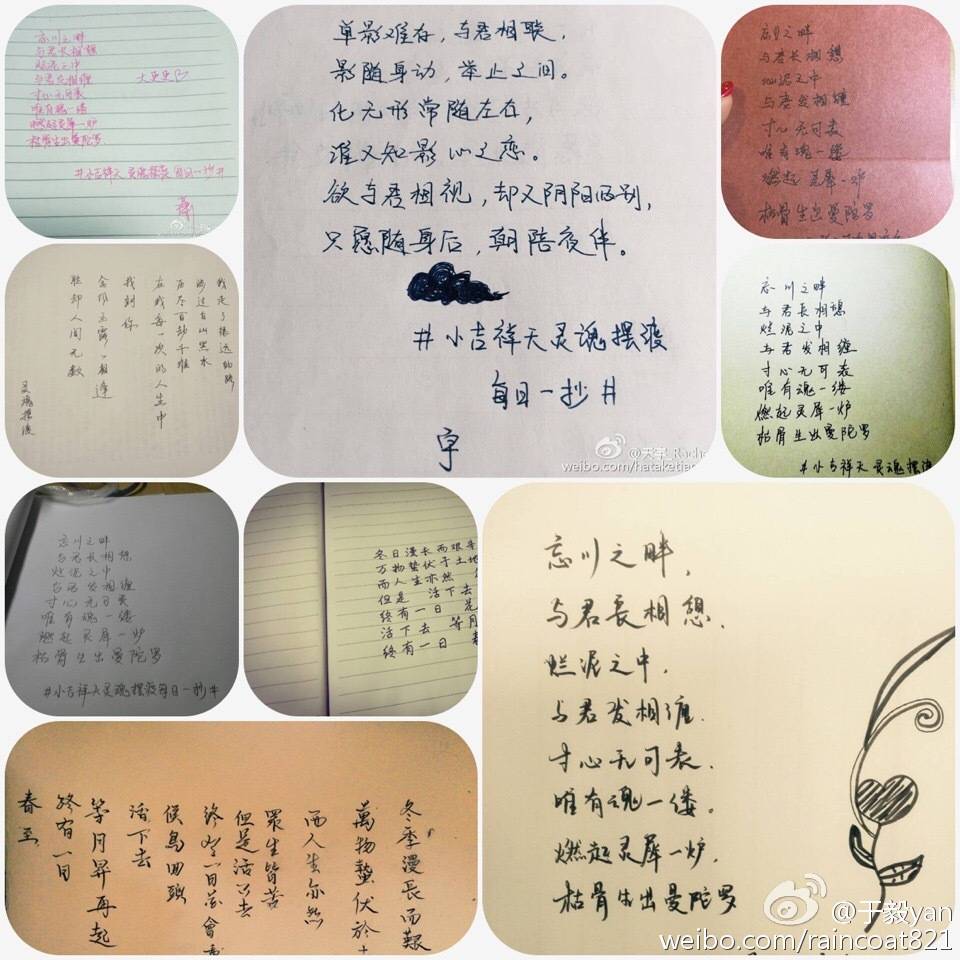 忘川之畔
与君长相憩
烂泥之中
与君发相缠
寸心无可表
唯有魂一缕
燃起灵犀一炉
枯骨生出曼陀罗
#小吉祥天 灵魂摆渡 每日一抄#
单影难存，与君相联，
影随身动，举止之间。
化无形常随左右，
谁又知影心之恋。
欲与君相视，却又阴阳两别，
只愿随身后，朝陪夜伴。
#小吉祥天灵魂摆渡
每日一抄#
宇
@天宇_Racha
weibo.com/hataketia
忘川之畔
与君长相憩
烂泥之中
与君发相缠
寸心无可表
唯有魂一缕
燃起灵犀一炉
枯骨生出曼陀罗
我走了很远的路
历尽百劫千难
在我每一次的人生中
我到你
金风玉露一相逢
胜却人间无数
灵魂摆渡
忘川之畔
与君長相憩
烂泥之中
与君发相缠
寸心无可表
唯有魂一缕
燃起灵犀一炉
枯骨生出曼陀罗
#小吉祥天灵魂摆渡
忘川之畔
与君长相憩
烂泥之中
与君发相缠
寸心无可表
唯有魂一缕
燃起灵犀一炉
枯骨生出曼陀罗
#小吉祥天灵魂摆渡每日一抄#
冬日漫长而艰辛
万物蛰伏于土地
而人生亦然
但是 活下去
终有一日 是
活下去 等月
终有一日 春
冬季漫長而艱
萬物蟄伏於土
而人生亦然
眾生皆苦
但是活下去
終有一日首會
候鳥回頭
活下去
等月昇再起
終有一日
春至
忘川之畔，
与君長相憩.
烂泥之中.
与君发相缠.
寸心无可表.
唯有魂一缕。
燃起灵犀一炉.
枯骨生出曼陀罗
@于毅yan
weibo.com/raincoat821